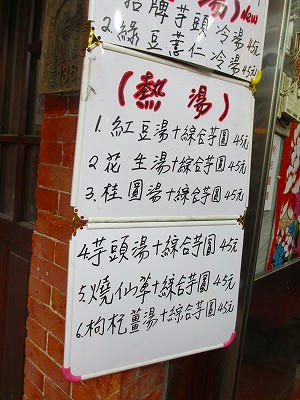 招牌芋頭冷湯45元
湯) New
2.綠豆薏仁冷湯45元
(熱湯)
1.紅豆湯+綜合芋圓45元
2.花生湯+綜合芋圓45元
3.桂圓湯+綜合芋圓45元
4.芋頭湯+綜合芋圓45元
5.燒仙草+綜合芋圓45元
6.枸杞薑湯+綜合芋圓45元